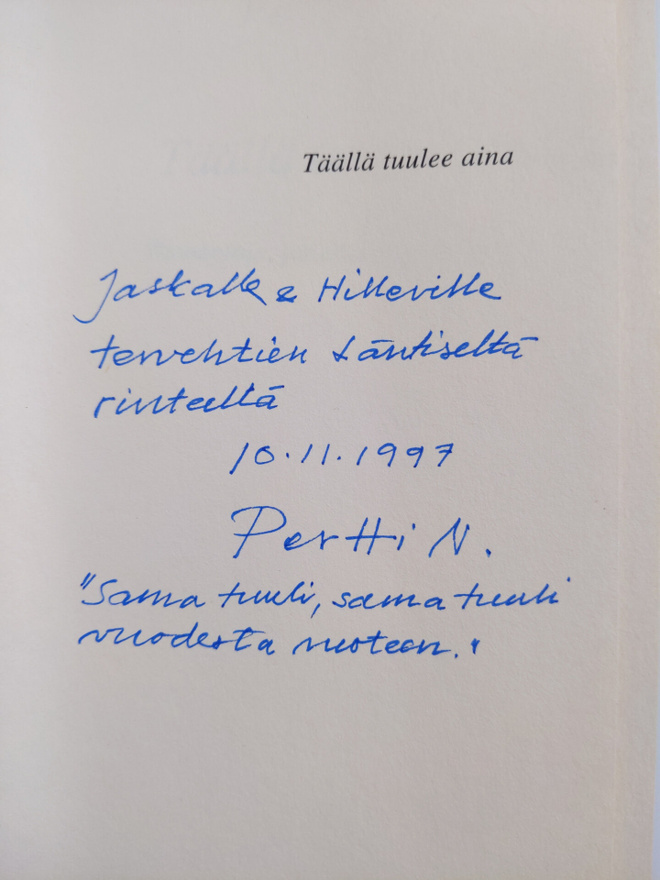 Täällä tuulee aina
Jaskalle & Hilleville
tervehtien Läntiseltä
rinteeltä
10.11.1997
Pertti N.
"Sama tuuli, sama tuuli
vuodesta vuoteen."